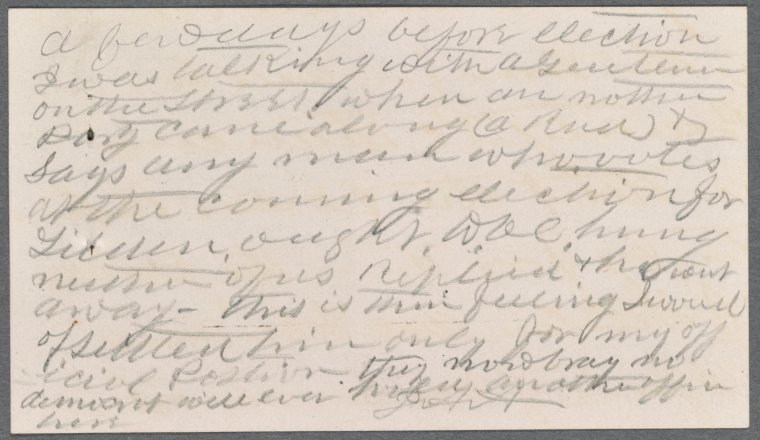 a few days before election
I was talking with a Gentlemen
on the Street when an nother
Party came along (a Rud) &
Says any man who votes
at the coming election for
Tilden ought to be hung
neither of us Replied & he went
away - this is their feeling I would
of settled him only for my off
icial Position they no
democrat will ever another office in
here